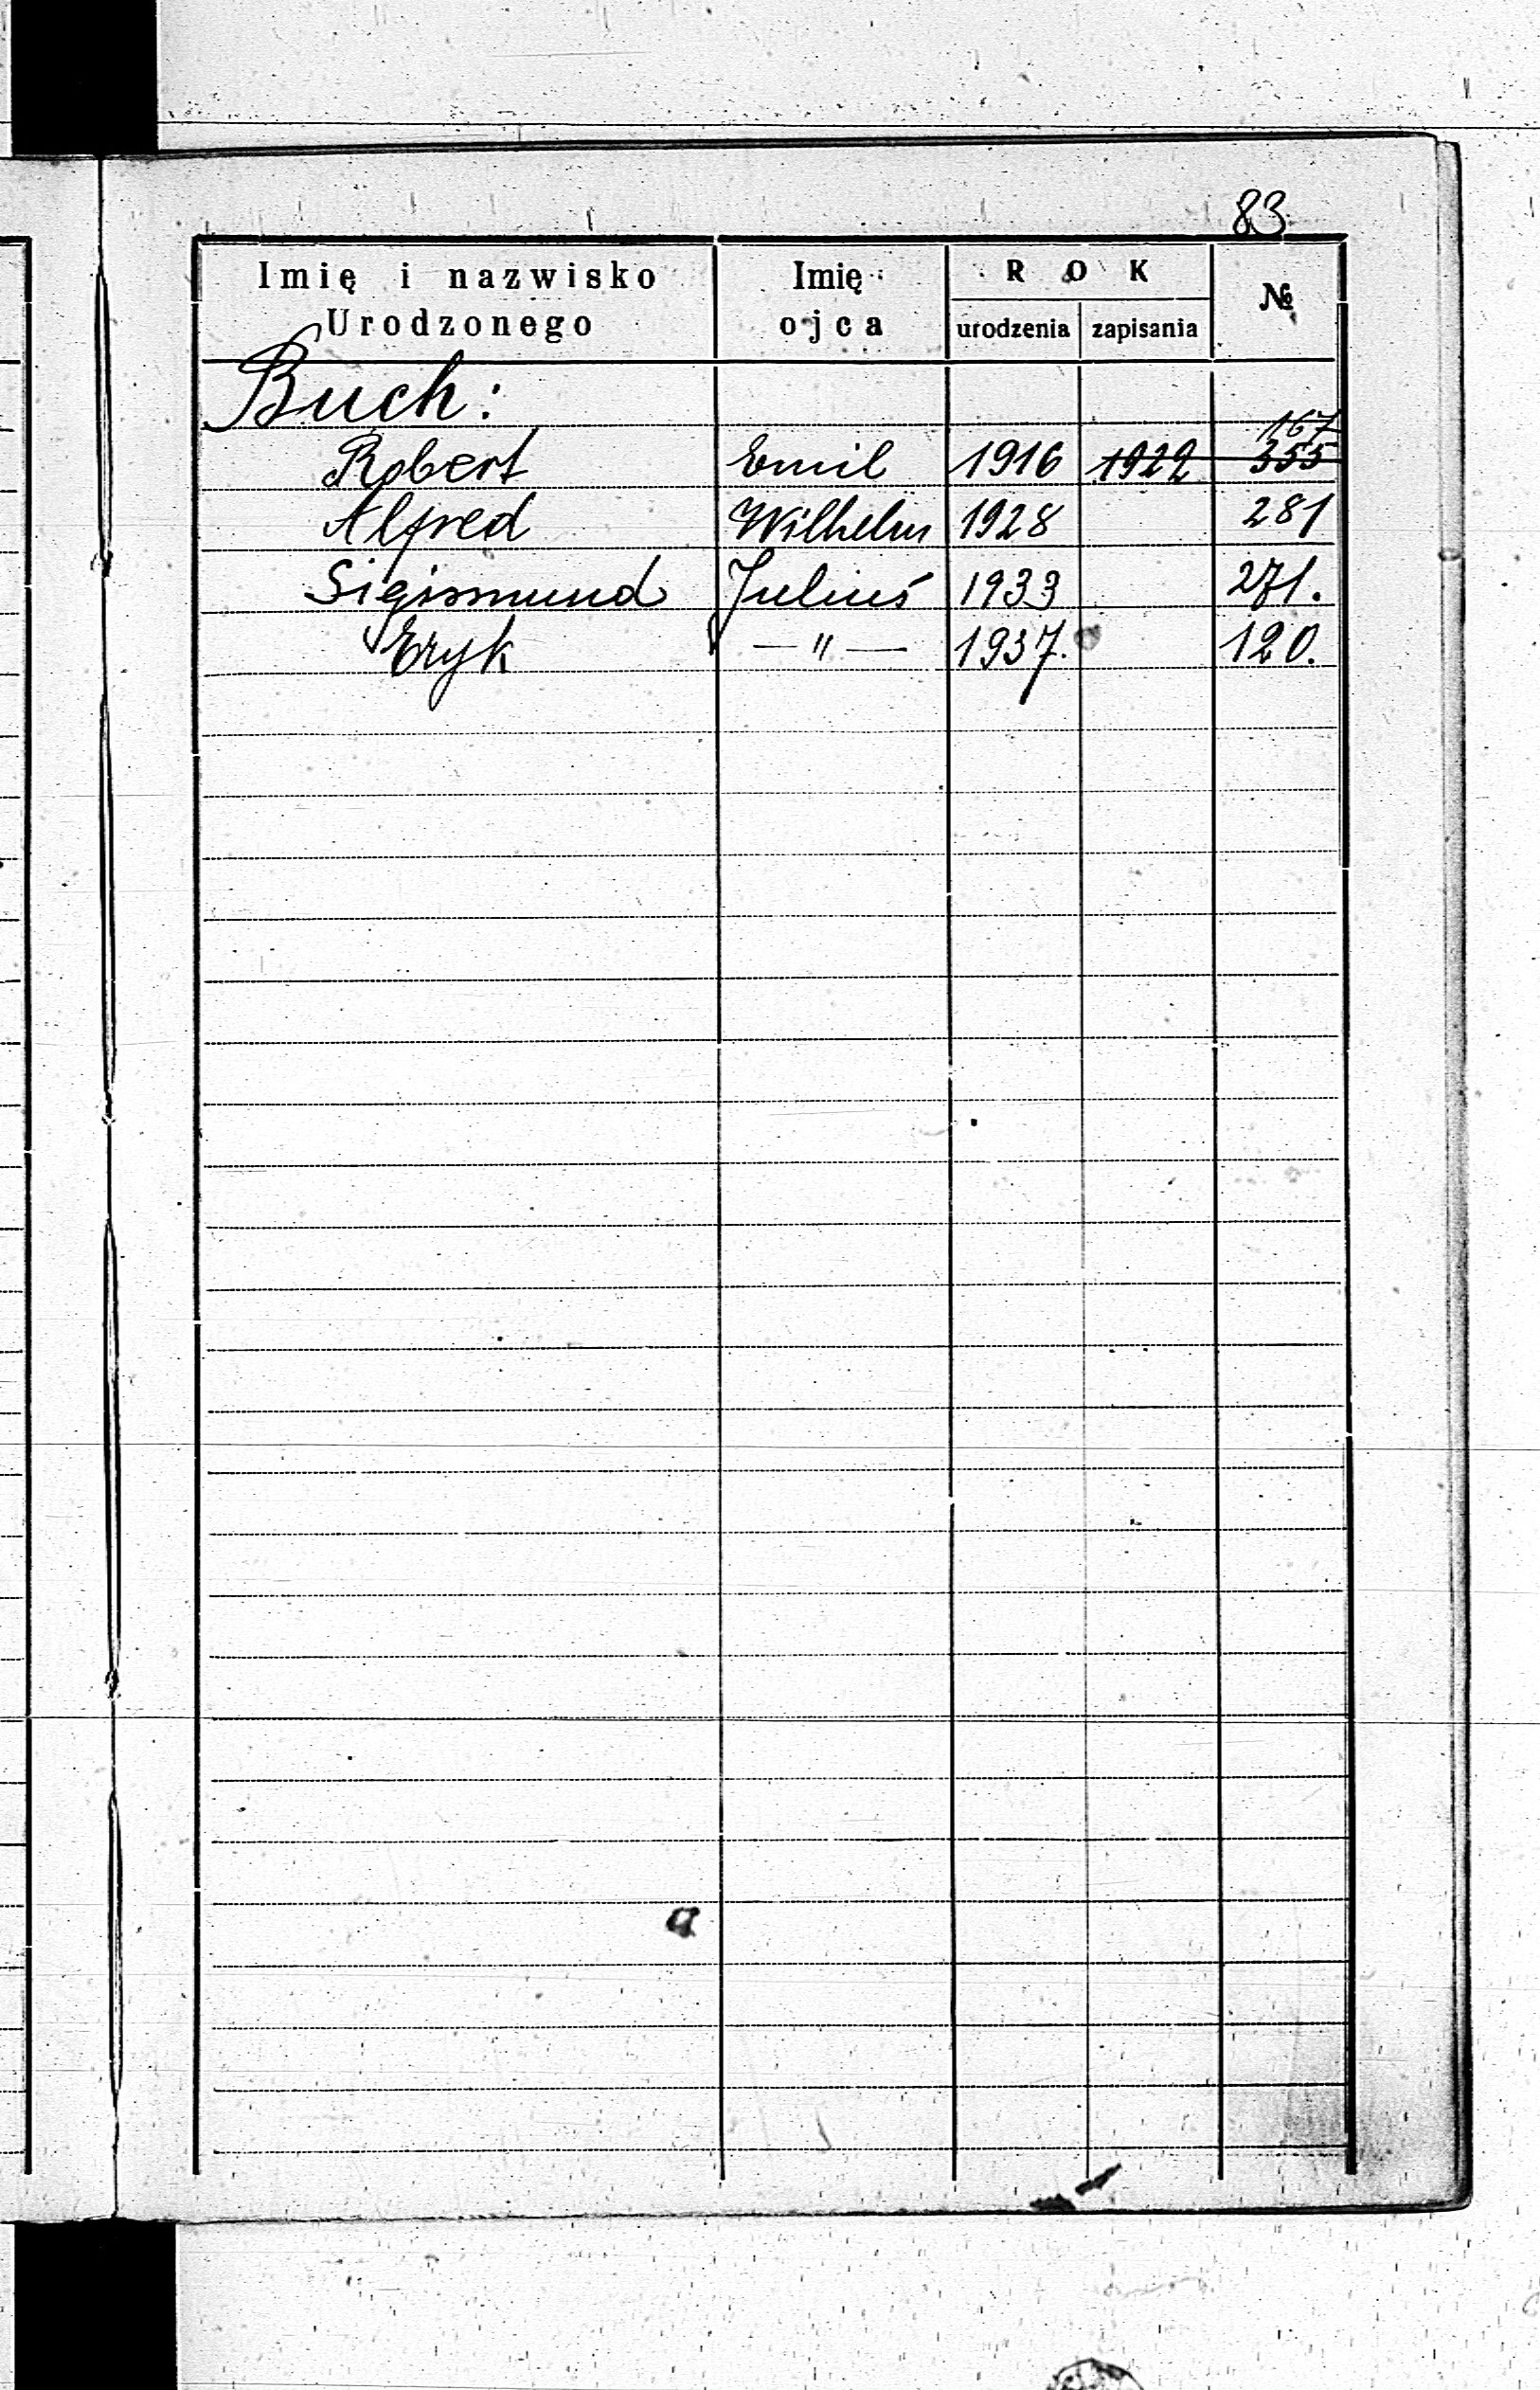 83
Imię i nazwisko Urodzonego Imię ojca ROK urodzenia zapisania №
Buch:
167
Robert Emil 1916 1922 355
Alfred Wilhelm 1928 281
Sigismund Julius 1933 271.
Eryk —"— 1937. 120.